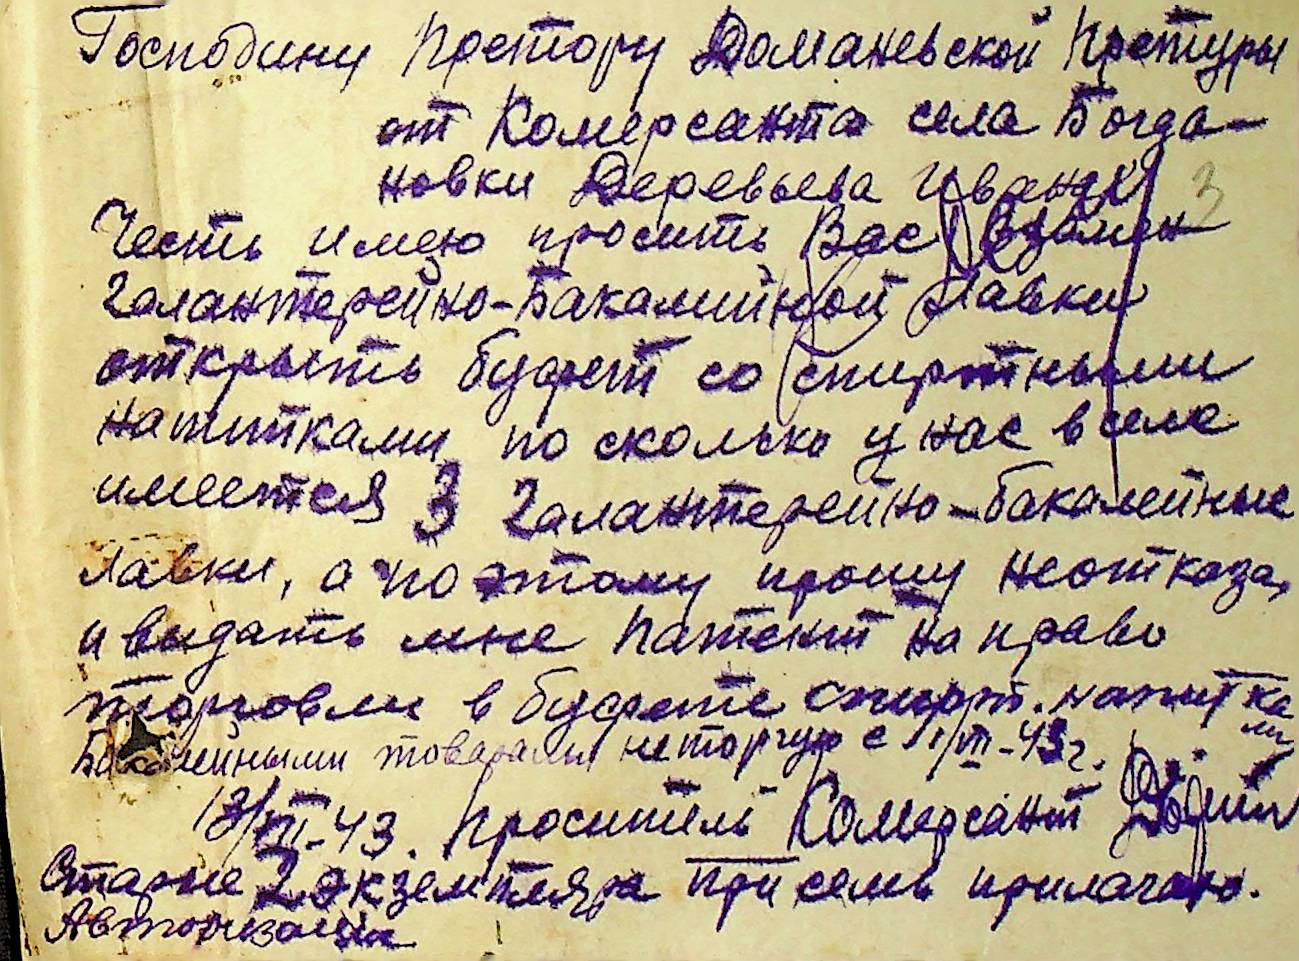 Господину Претору Доманевской Претуры
от Комерсанта села Богда-
новки Деревьева Ивана
3
Честь имею просить Вас Взамен
Галантерейно-Бакалийной Лавки
открыть буфет со спиртными
напитками, по сколько у нас в селе
имеется 3 Галантерейно-бакалейные
Лавки, а поэтому прошу неотказа,
и выдать мне Патент на право
торговли в буфете спирт. напитка
ми
Бакалейными товарами неторгую с 1/VII-43 г.
VII-43. Проситель Комерсант
Старые 2 экземпляра при семь прилагаю.
Авторизации